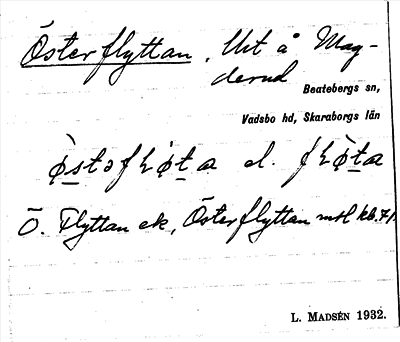 Österflyttan, Utt å Mag-
derud
Beatebergs sn,
Vadsbo hd, Skaraborgs län
el.
Ö. Flyttan ek, Österflyttan mtl kb. 71.
L. MADSÉN 1932.